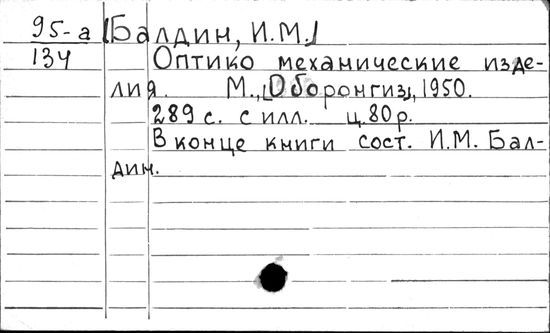 95-а [Балдин, И.М.]
134 Оптико механические изде-
лия. М., [Оборонгиз], 1950.
289 с. с илл. ц. 80 р.
В конце книги сост. И.М. Бал-
дин.